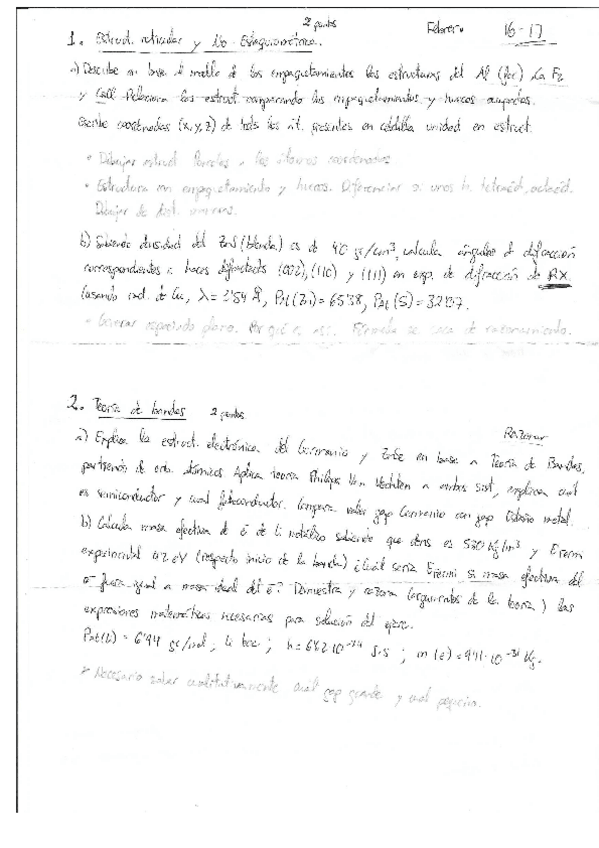 2 puntos Febrero 16-17
1. Estruct. reticular y No Estequiométrico.
a) Describe en base al modelo de los empaquetamientos las estructuras del Al (fcc)
y Relaciona las estruct comparando los empaquetamientos y huecos ocupados.
Escribe coordenadas (x,y,z) de todos los át. presentes en celdilla unidad en estruct.
• Dibujar estruct. Ponerles a los átomos coordenadas.
• Estructura con empaquetamiento y huecos. Diferenciar si unos h. tetraéd, octaéd.
Dibujar de dist. maneras.
b) Sabiendo densidad del ZnS (blenda) es de gr/cm³, calcula ángulos de difracción
correspondientes a haces difractados (002), (110) y (111) en exp. de difracción de RX.
(usando rad. de Cu, λ = 1'54 Å, Pat(Zn) = 65'38, Pat(S) = 32'07.
• plano. Por qué es así. Fórmula se saca de razonamiento.
2. Teoría de bandas 2 puntos
Razonar
a) Explica la estruct. electrónica del Germanio y ZnSe en base a Teoría de Bandas,
partiendo de orb. atómicos. Aplica teoría Phillips Van Vechten a ambos sist, explica cuál
es semiconductor y cual fotoconductor. Compara valor gap Germanio con gap Estaño metal.
b) Calcula masa efectiva de e⁻ de Li metálico sabiendo que dens es 530 Kg/m³ y E fermi
experimental 4'2 eV (respecto inicio de la banda) ¿Cuál sería E fermi si masa efectiva del
e⁻ fuera igual a masa ideal del e⁻? Demuestra y razona (argumentos de la teoría) las
expresiones matemáticas necesarias para solución del ejerc.
Pat(Li) = 6'94 gr/mol ; Li bcc ; h = 6'62·10⁻³⁴ J·s ; m(e) = 9'11·10⁻³¹ Kg.
* Necesario saber cualitativamente cuál gap grande y cual pequeño.